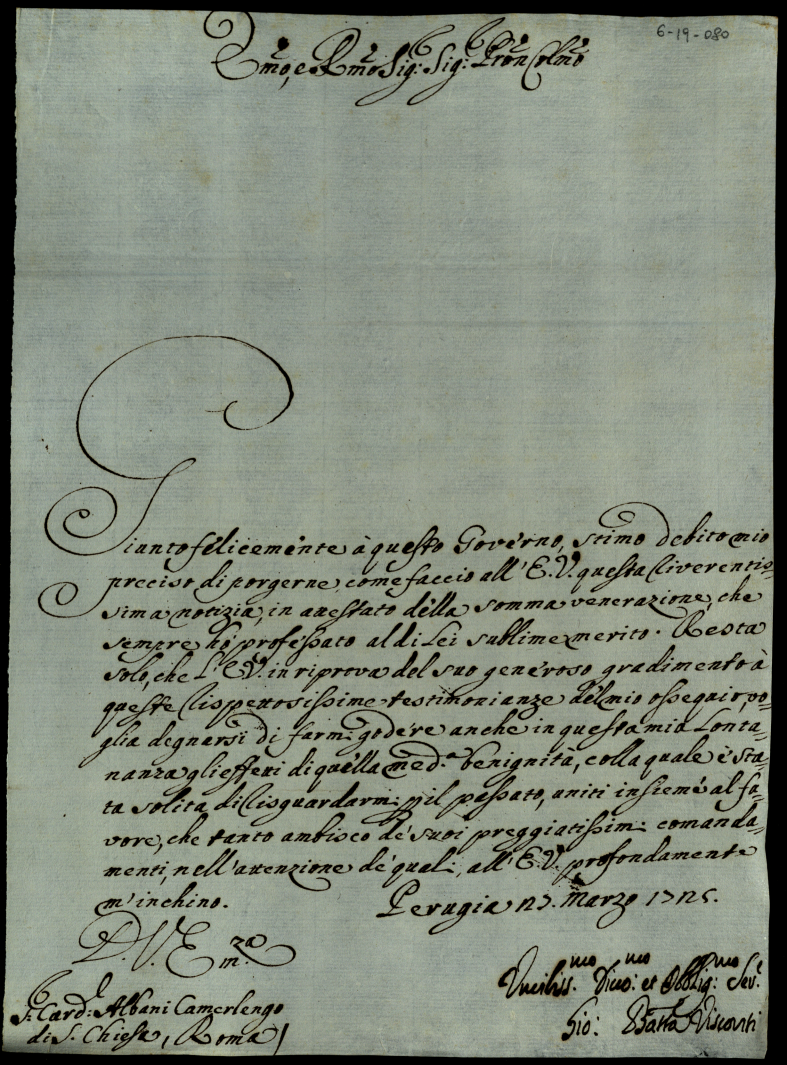 6-19-080
Emo, e Rmo Sig: Sig: Pron Colmo
Giunto felicemente à questo Governo, stimo debito mio
preciso di porgerne, come faccio all'E.V. questa riverentis-
sima notizia, in attestato della somma venerazione, che
sempre hò professato al di Lei sublime merito. Resta
solo, che l'E.V. in riprova del suo generoso gradimento à
queste rispettosissime testimonianze del mio ossequio, vo-
glia degnarsi di farmi godere anche in questa mia Lonta-
nanza gli effetti di quella med.a benignità, colla quale è sta-
ta solita di risguardarmi p il passato, uniti insieme al fa-
vore, che tanto ambisco de' suoi preggiatissimi comanda-
menti, nell'attenzione de' quali, all'E.V. profondamente
m'inchino. Perugia Marzo
D. V. Em.za
S: Card: Albani Camerlengo
di S. Chiesa, Roma /
Umiliss.mo Divo:mo et Obblig:mo Ser.
Gio: Batta Visconti